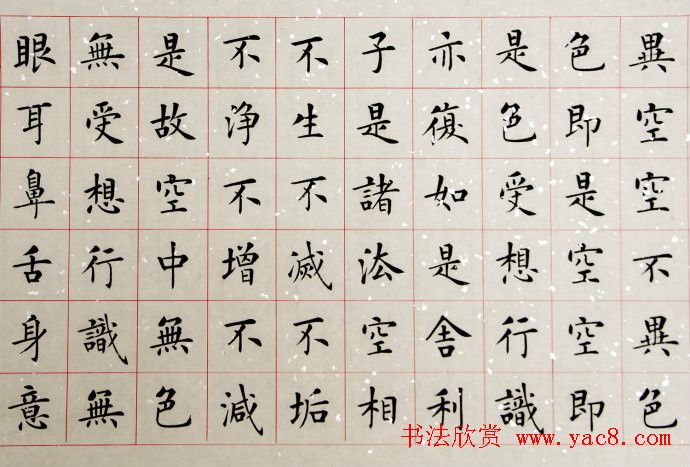 異空空不異色
色即是空空即
是色受想行識
亦復如是舎利
子是諸法空相
不生不滅不垢
不浄不增不減
是故空中無色
無受想行識無
眼耳鼻舌身意
书法欣赏 www.yac8.com